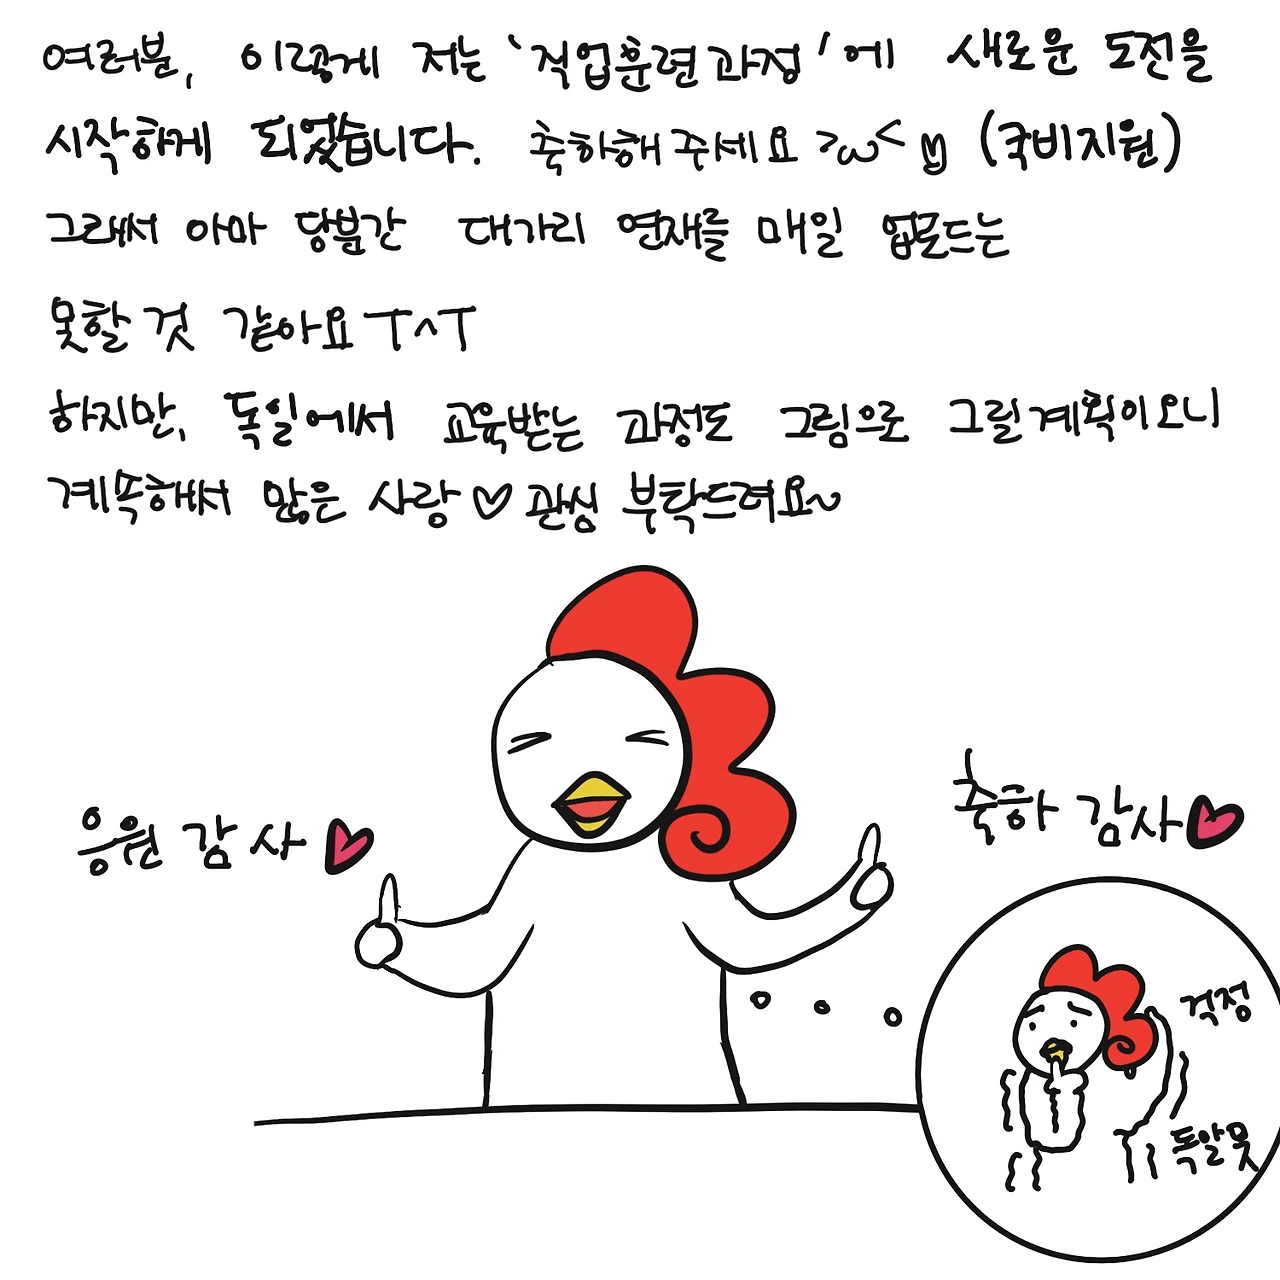 여러분, 이렇게 저는 '직업훈련과정'에 새로운 도전을
시작하게 되었습니다. 축하해주세요 >ω< (국비지원)
그래서 아마 당분간 대가리 연재를 매일 업로드는
못할 것 같아요 ㅜ^ㅜ
하지만, 독일에서 교육받는 과정도 그림으로 그릴계획이오니
계속해서 많은 사랑♡관심 부탁드려요~
응원 감사
축하 감사
걱정
독알못